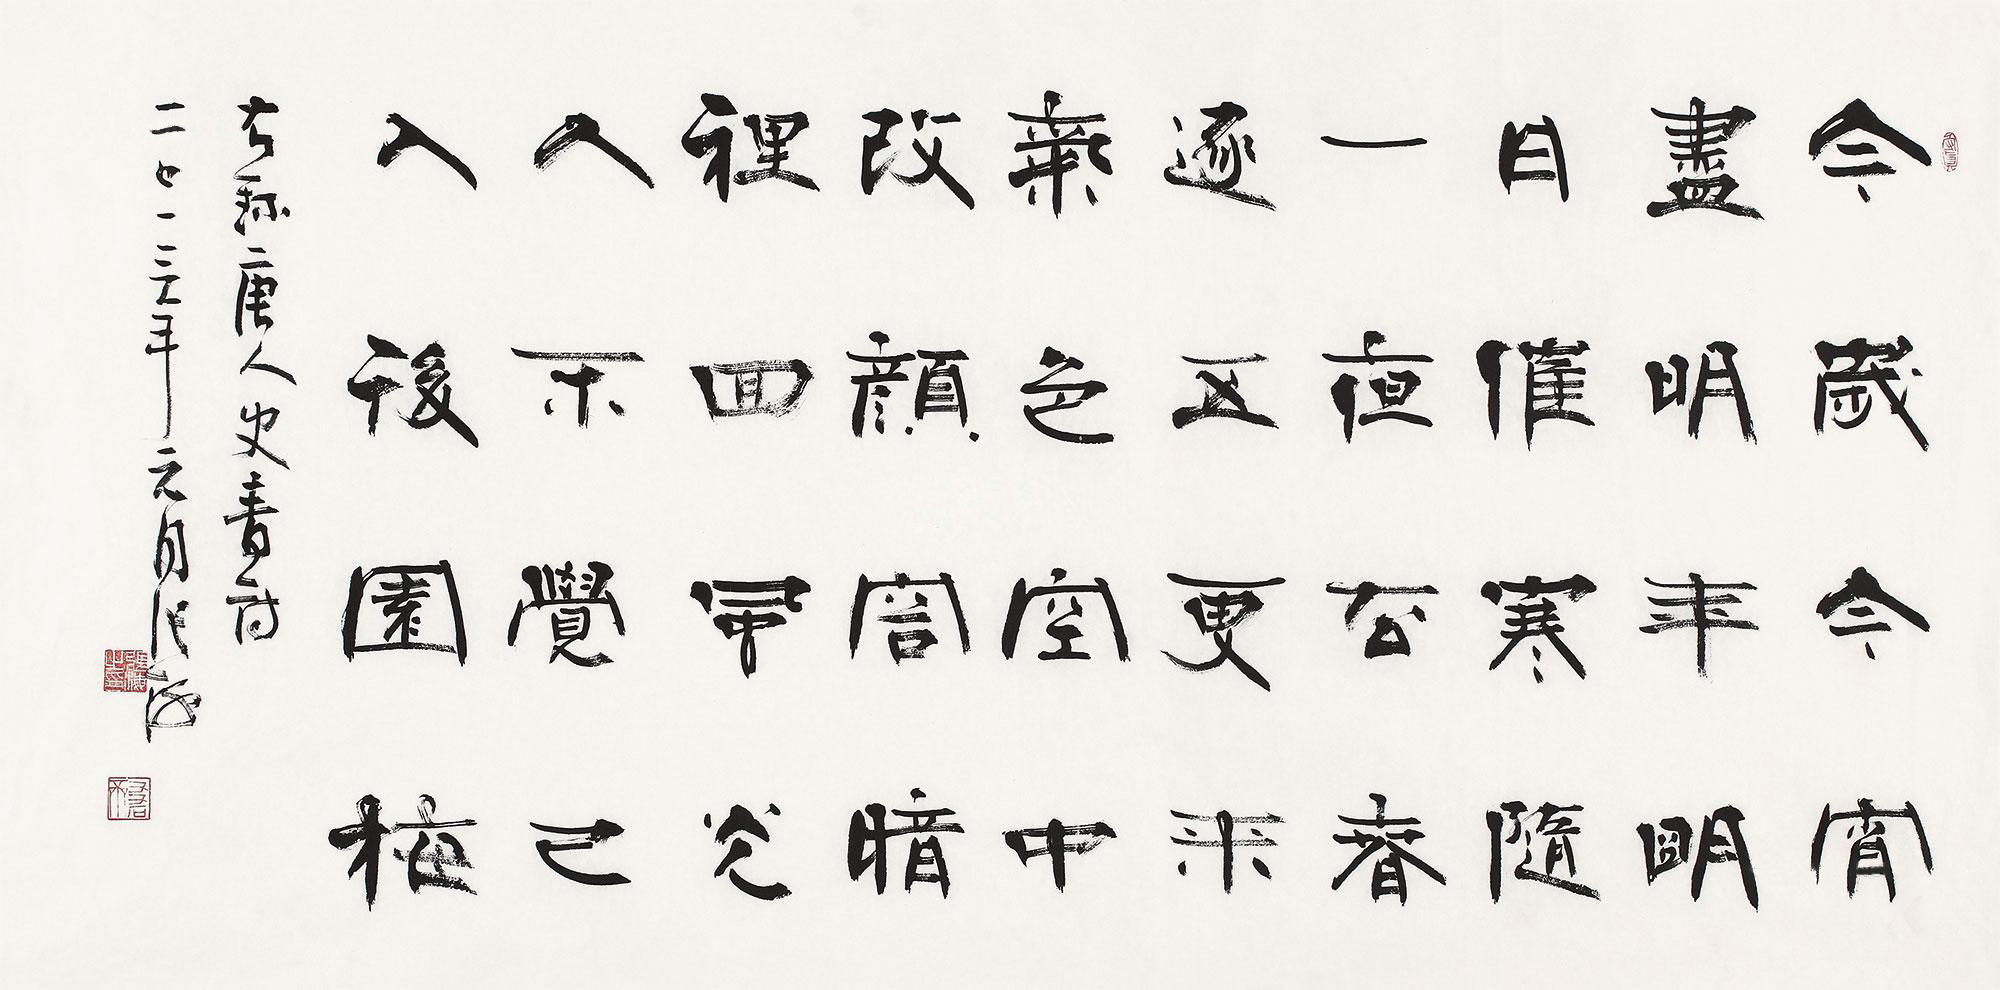 今歲今宵
盡明年明
日催寒隨
一夜去春
逐五更來
氣色空中
改顏容暗
裡回風光
人不覺已
入後園梅
右録唐人史青詩
二〇一三年元月張海